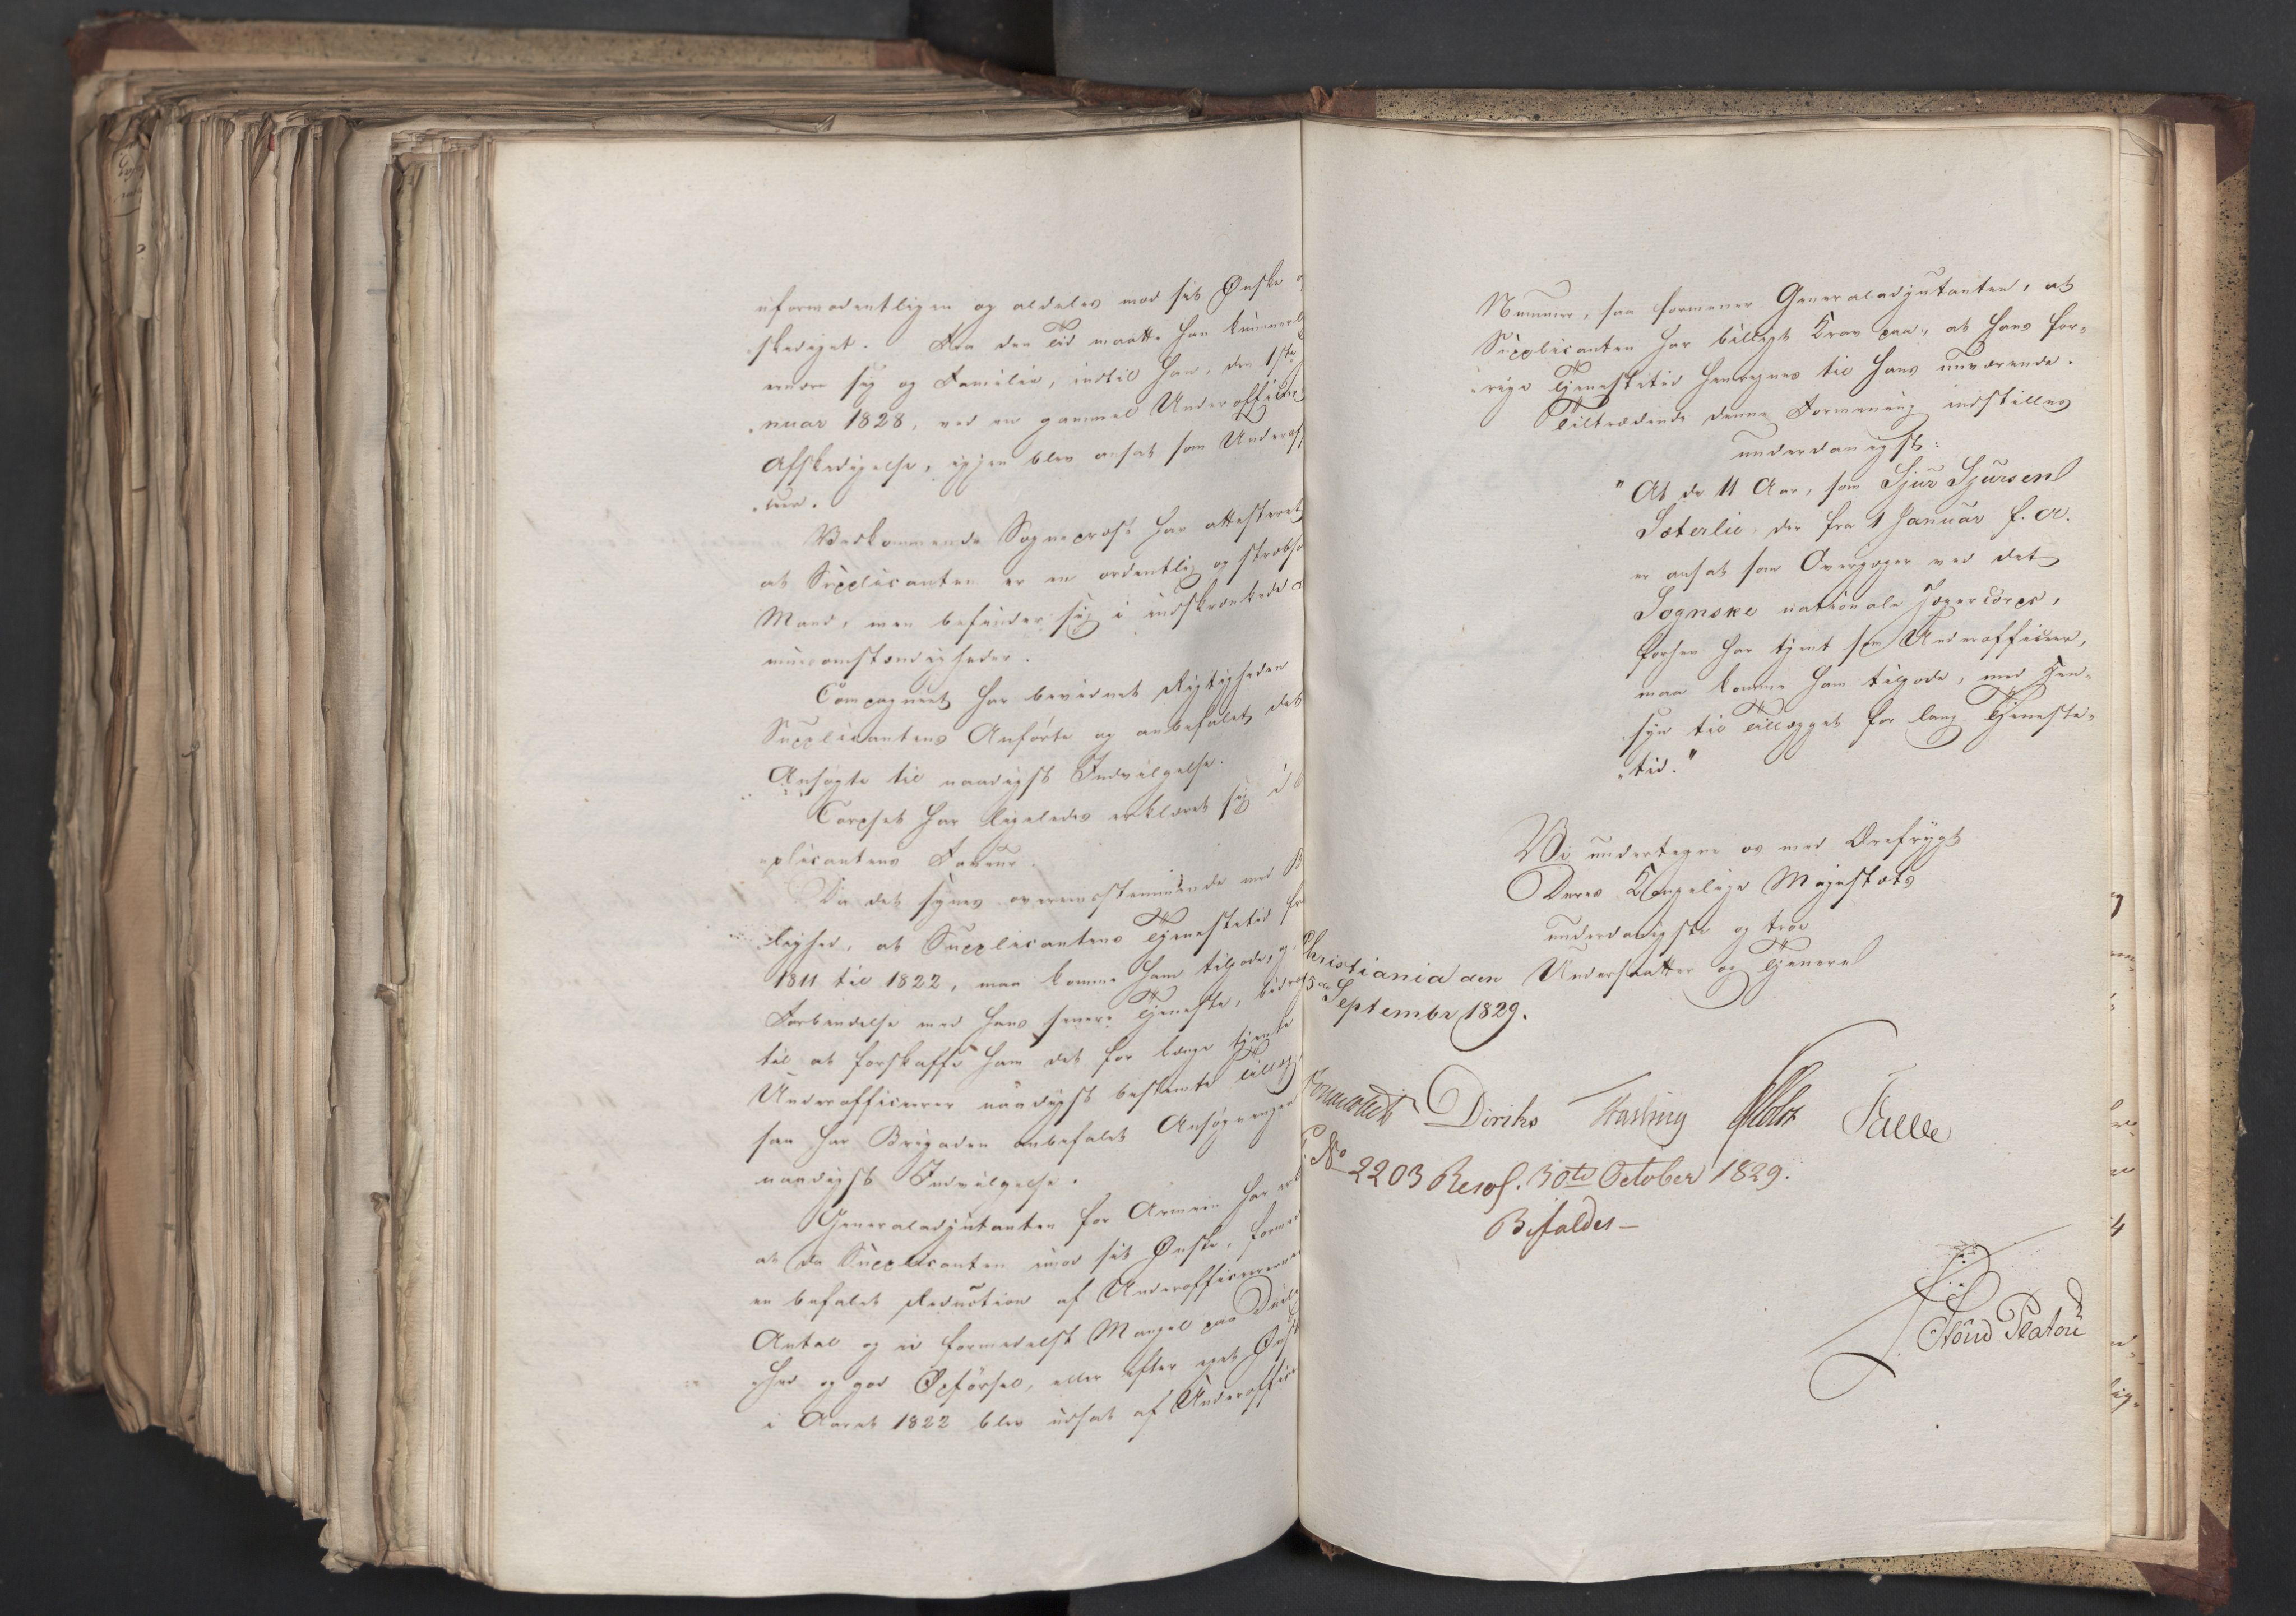 uformodentligen og aldeles mod sit Ønske
skediget. Fra den Tid maatte han kummerl
ernære sig og Familie, indtil han, den 1ste
nuar 1828, ved en gammel Underofficers
Afskedigelse, igjen blev ansat som Underof
ceer.
Vedkommende Sogneprest har attesteret
at Supplicanten er en ordentlig og stræbso
Mand, men befinder sig i indskrænkede
mueomstændigheder.
Compagniet har bevidnet Rigtigheden
Supplicantens Anførte og anbefalet det
Ansøgte til naadigst Indvilgelse.
Corpset har ligeledes erklæret sig i
plicantens Faveur.
Da det synes overensstemmende med B
lighed, at Supplicantens Tjenestetid fra
1811 til 1822, maa komme ham tilgode, og i
Forbindelse med hans senere Tjeneste, bidrage
til at forskaffe ham det for længe tjente
Underofficerer naadigst bestemte Tillæg,
saa har Brigaden anbefalet Ansøgningen
naadigst Indvilgelse.
Generaladjutanten for Armeen har
at da Supplicanten imod sit Ønske, formed
en befalet Reduction af Underofficerernes
Antal og ei formedelst Mangel paa Due
hed og god Opførsel, eller efter eget Ønsk
i Aaret 1822 blev udsat af Underoffice
Nummer, saa formener Generaladjutanten, at
Supplicanten har billigt Krav paa, at hans for-
rige Tjenestetid henregnes til hans nuværende.
Tiltrædende denne Formening indstilles
underdanigst:
"At de 11 Aar, som Sjur Sjursen
Sæterlie, der fra 1 Januar f. A.
er ansat som Overjæger ved det
Sognske nationale Jægercorps,
forhen har tjent som Underofficeer,
maa komme ham tilgode, med Hen-
syn til Tillægget for lang Tjeneste-
tid."
Vi undertegne os med Ærefrygt
Deres Kongelige Majestæts
underdanigste og troe
Undersaatter og Tjenere
Christiania den
15de September 1829.
Sommerfeldt Diriks Fasting Holst Falbe
P. No 2203 Resol. 30te October 1829.
Bifaldes -
Stoud Platou